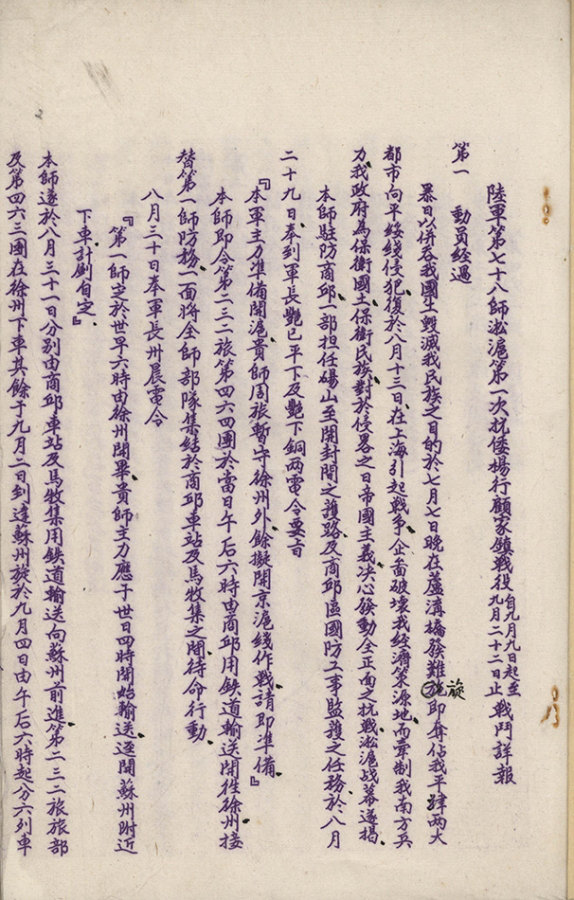 陸軍第七十八師淞滬第一次抗倭楊行顧家鎮戰役自九月九日起至九月二十二日止戰鬥詳報
第一　動員經過
暴日以併吞我國土毀滅我民族之目的於七月七日晚在蘆溝橋發難旋即奪佔我平津兩大
都市向平綏綫侵犯復於八月十三日在上海引起戰爭企啚破壞我經濟策源地而牽制我南方兵
力我政府為保衛國土保衛民族對於侵畧之日帝國主義決心發動全正面之抗戰淞滬战幕遂揭
本師駐防商邱一部担任碭山至開封間之護路及商邱區國防工事監護之任務於八月
二十九日奉到軍長艷巳平下及艷下銅兩電令要旨
『本軍主力準備開滬貴師周旅暫守徐州外餘擬開京滬綫作戰請即準備』
本師即令第二三二旅第四六四團於當日午后六時由商邱用鉄道輸送開徃徐州接
替第一師防務一面將全師部隊集結於商邱車站及馬牧集之間待命行動
八月三十日奉軍長卅晨電令
『第一師定於世早六時由徐州開畢貴師主力應于世日四時開始輸送逕開蘇州附近
下車計劃自定』
本師遂於八月三十一日分别由商邱車站及馬牧集用鉄道輸送向蘇州前進第二三二旅旅部
及第四六三團在徐州下車其餘于九月二日到達蘇州旋於九月四日由午后六時起分六列車